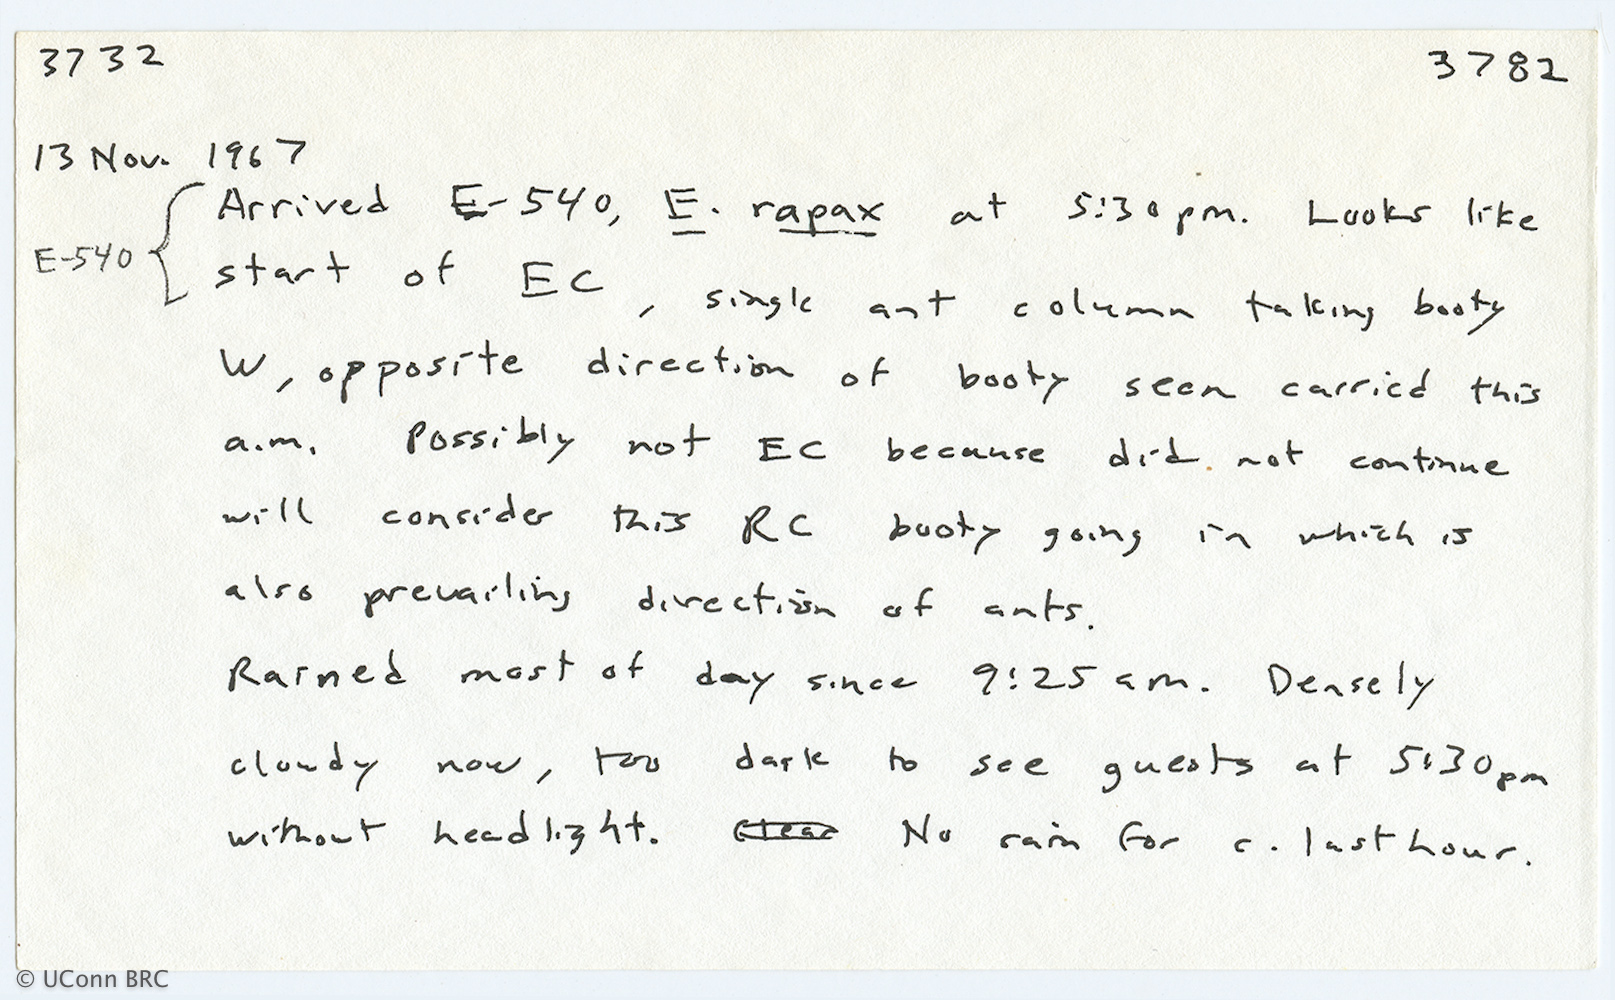 3732 3782
13 Nov. 1967
Arrived E-540, E. rapax at 5:30 pm. Looks like
E-540
start of EC, single ant column taking booty
W, opposite direction of booty seen carried this
a.m. Possibly not EC because did not continue
will consider this RC booty going in which is
also prevailing direction of ants.
Rained most of day since 9:25 am. Densely
cloudy now, too dark to see guests at 5:30pm
without headlight. Clear No rain for c. last hour.
© UConn BRC